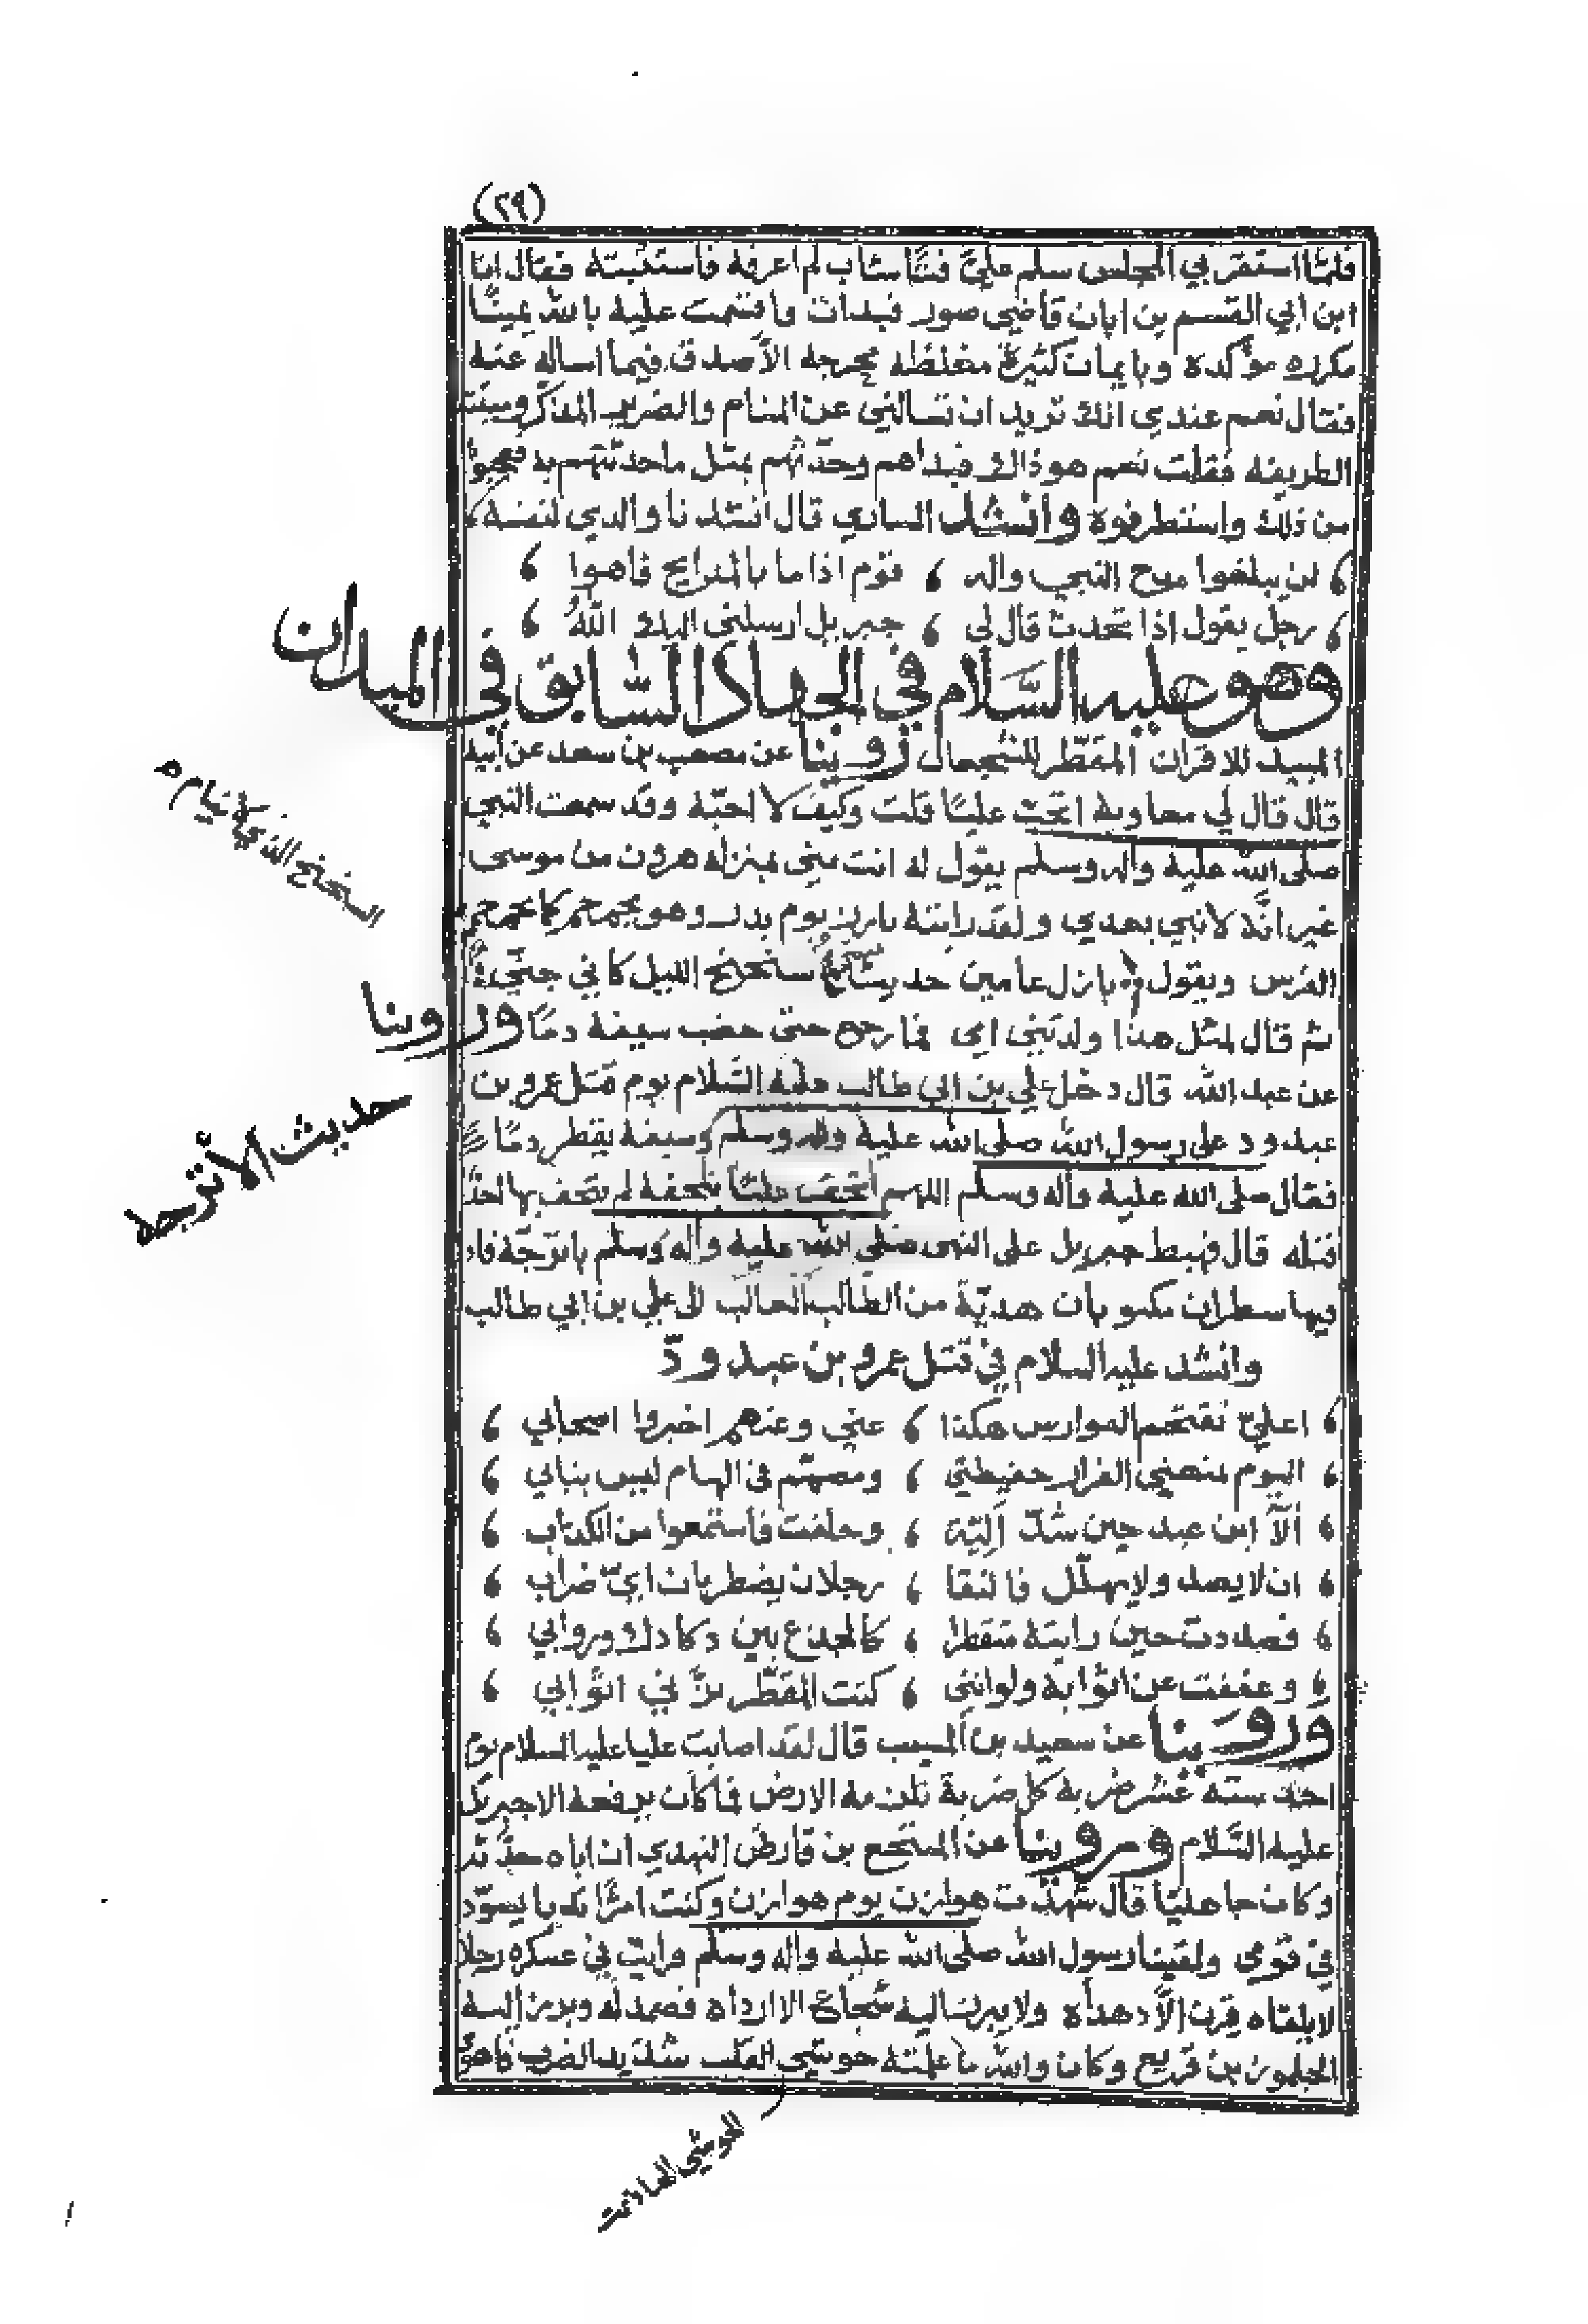 (٢٩)
فلما استقر بي المجلس سلم عليّ فتًا شاب لم اعرفه فاستنسبته فقال انا
ابن ابي القسم بن ابان قاضي صور فبدات واقسمت عليه بالله يمينًا
مكرره مؤكده وبايمان كثيرة مغلظه محرجه الاّ صدق فيما اساله عنه
فقال نعم عندي انك تريد ان تسالني عن المنام والضرير المذكر وميتته
الطريفه فقلت نعم هو ذاك فبداهم وحدّثهم بمثل ما حدثتهم به فعجبوا
من ذلك واستطرفوه وانشد الساري قال انشدنا والدي لنفسه
لن يبلغوا مدح النبي واله ، قوم اذا ما بالمدايح فاهوا ،
رجل يقول اذا تحدث قال لي ، جبريل ارسلني اليك اللهُ ،
وهو عليه السّلام في الجهاد السّابق في الميدان
المبيد للاقران المقطّر للشجعان روينا عن مصعب بن سعد عن ابيه
قال قال لي معاويه اتحبّ عليًا قلت وكيف لا احبّه وقد سمعت النبي
صلى الله عليه واله وسلم يقول له انت مني بمنزله هرون من موسى
غير انّه لا نبي بعدي ولقد رايته بارز يوم بدر وهو يحمحم كما يحمحم
الفرس ويقول بازل عامين حديث سنحنح الليل كاني جنّي
السنحنح الذي لا ينام م
ثم قال لمثل هذا ولدتني امي فما رجع حتى خضب سيفه دمًا وروينا
عن عبد الله قال دخل علي بن ابي طالب عليه السّلام يوم قتل عمرو بن
حديث الأترجه
عبد ود على رسول الله صلى الله عليه واله وسلم وسيفه يقطر دمًا
فقال صلى الله عليه واله وسلم اللهم اتحف عليًا بتحفه لم تتحف بها احدًا
قبله قال فهبط جبريل على النبي صلى الله عليه واله وسلم باترجّه فاذ
فيها سطران مكتوبان هديّة من الطّالب الغالب الى علي بن ابي طالب
وانشد عليه السلام في قتل عمرو بن عبد ودّ
اعليّ تقتحم الفوارس هكذا ، عني وعنهم اخبروا اصحابي ،
اليوم تمنعني الفرار حفيظتي ، ومصمّم في الهام ليس بنابي ،
ألآ ابن عبد حين شدّ أليّة ، وحلفت فاستمعوا من الكذاب ،
ان لا يصد ولا يهلّل فالتقا ، رجلان يضطربان ايّ ضراب ،
فصددت حين رايته متقطرا ، كالجذع بين دكادك وروابي ،
وعففت عن اثوابه ولوانني ، كنت المقطّر بزّني اثوابي ،
وروينا عن سعيد بن المسيب قال لقد اصابت عليا عليه السلام يوم
احد ستة عشر ضربه كل ضربة تلزمه الارض فما كان يرفعه الا جبريل
عليه السّلام وروينا عن المنتجع بن قارض النهدي ان اباه حدّثه
وكان جاهليًا قال شهدت هوازن يوم هوازن وكنت امرًا ندبا يسوّد
في قومي ولقينا رسول الله صلى الله عليه واله وسلم ورايت في عسكره رجلا
لا يلقاه قرن الاّ دهداه ولا يبرز اليه شجاع الا ارداه فصمد له وبرز اليه
الجلموز بن قريع وكان والله ما علمته حوشي القلب شديد الضرب
الحوشي